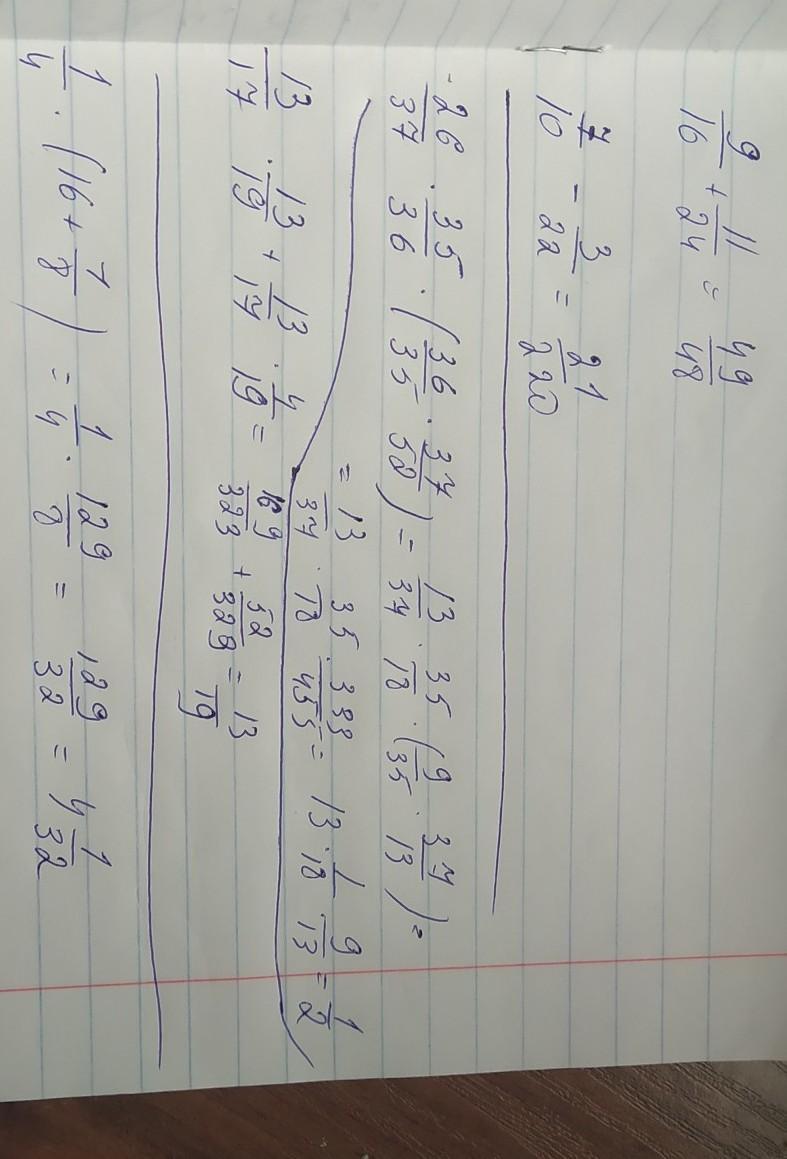 9/16 + 11/24 = 49/48
7/10 - 3/22 = 21/220
-26/37 · 35/36 · (36/35 · 37/52) = 13/37 · 35/18 · (9/35 · 37/13) =
= 13/37 · 35/18 · 333/455 = 13 · 1/18 · 9/13 = 1/2
13/17 · 13/19 + 13/17 · 4/19 = 169/323 + 52/323 = 13/19
1/4 · (16 + 1/8) = 1/4 · 129/8 = 129/32 = 4 1/32